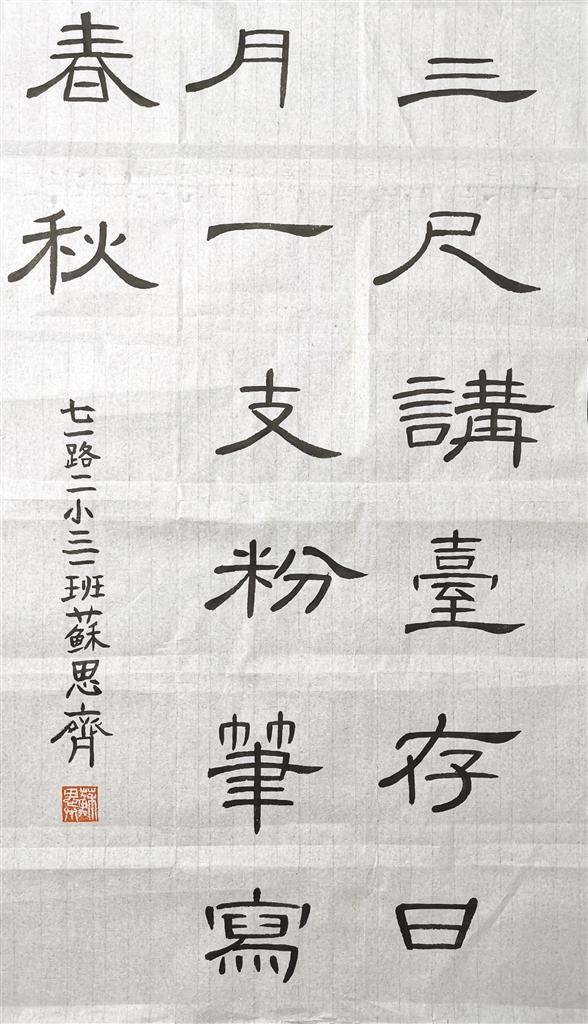 三尺講臺存日
月一支粉筆寫
春秋
七一路二小三一班蘇思齊